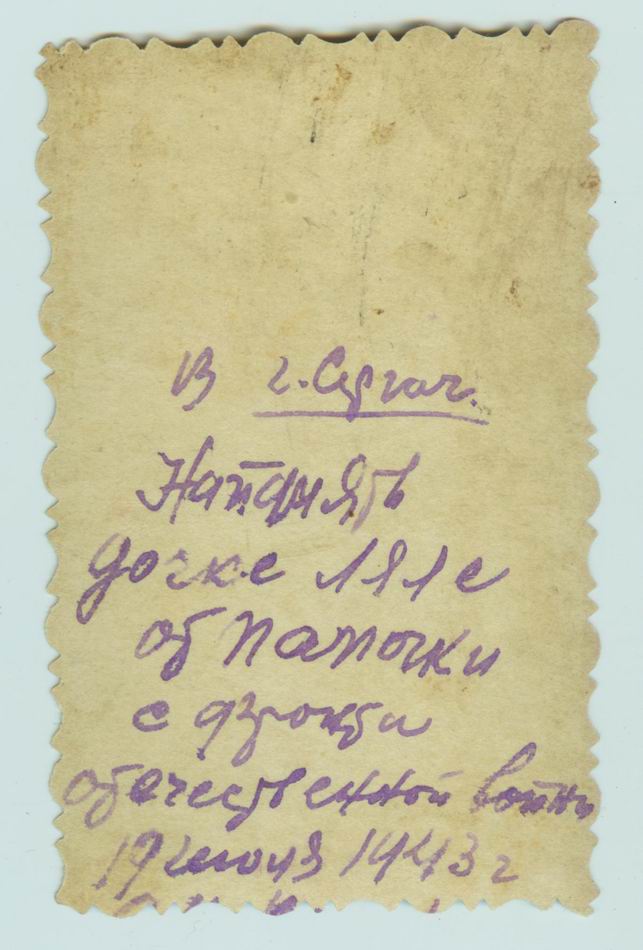 В г. Сергач.
Напамять
дочке Ляле
от папочки
с фронта
отечественной войны
19 июля 1943 г